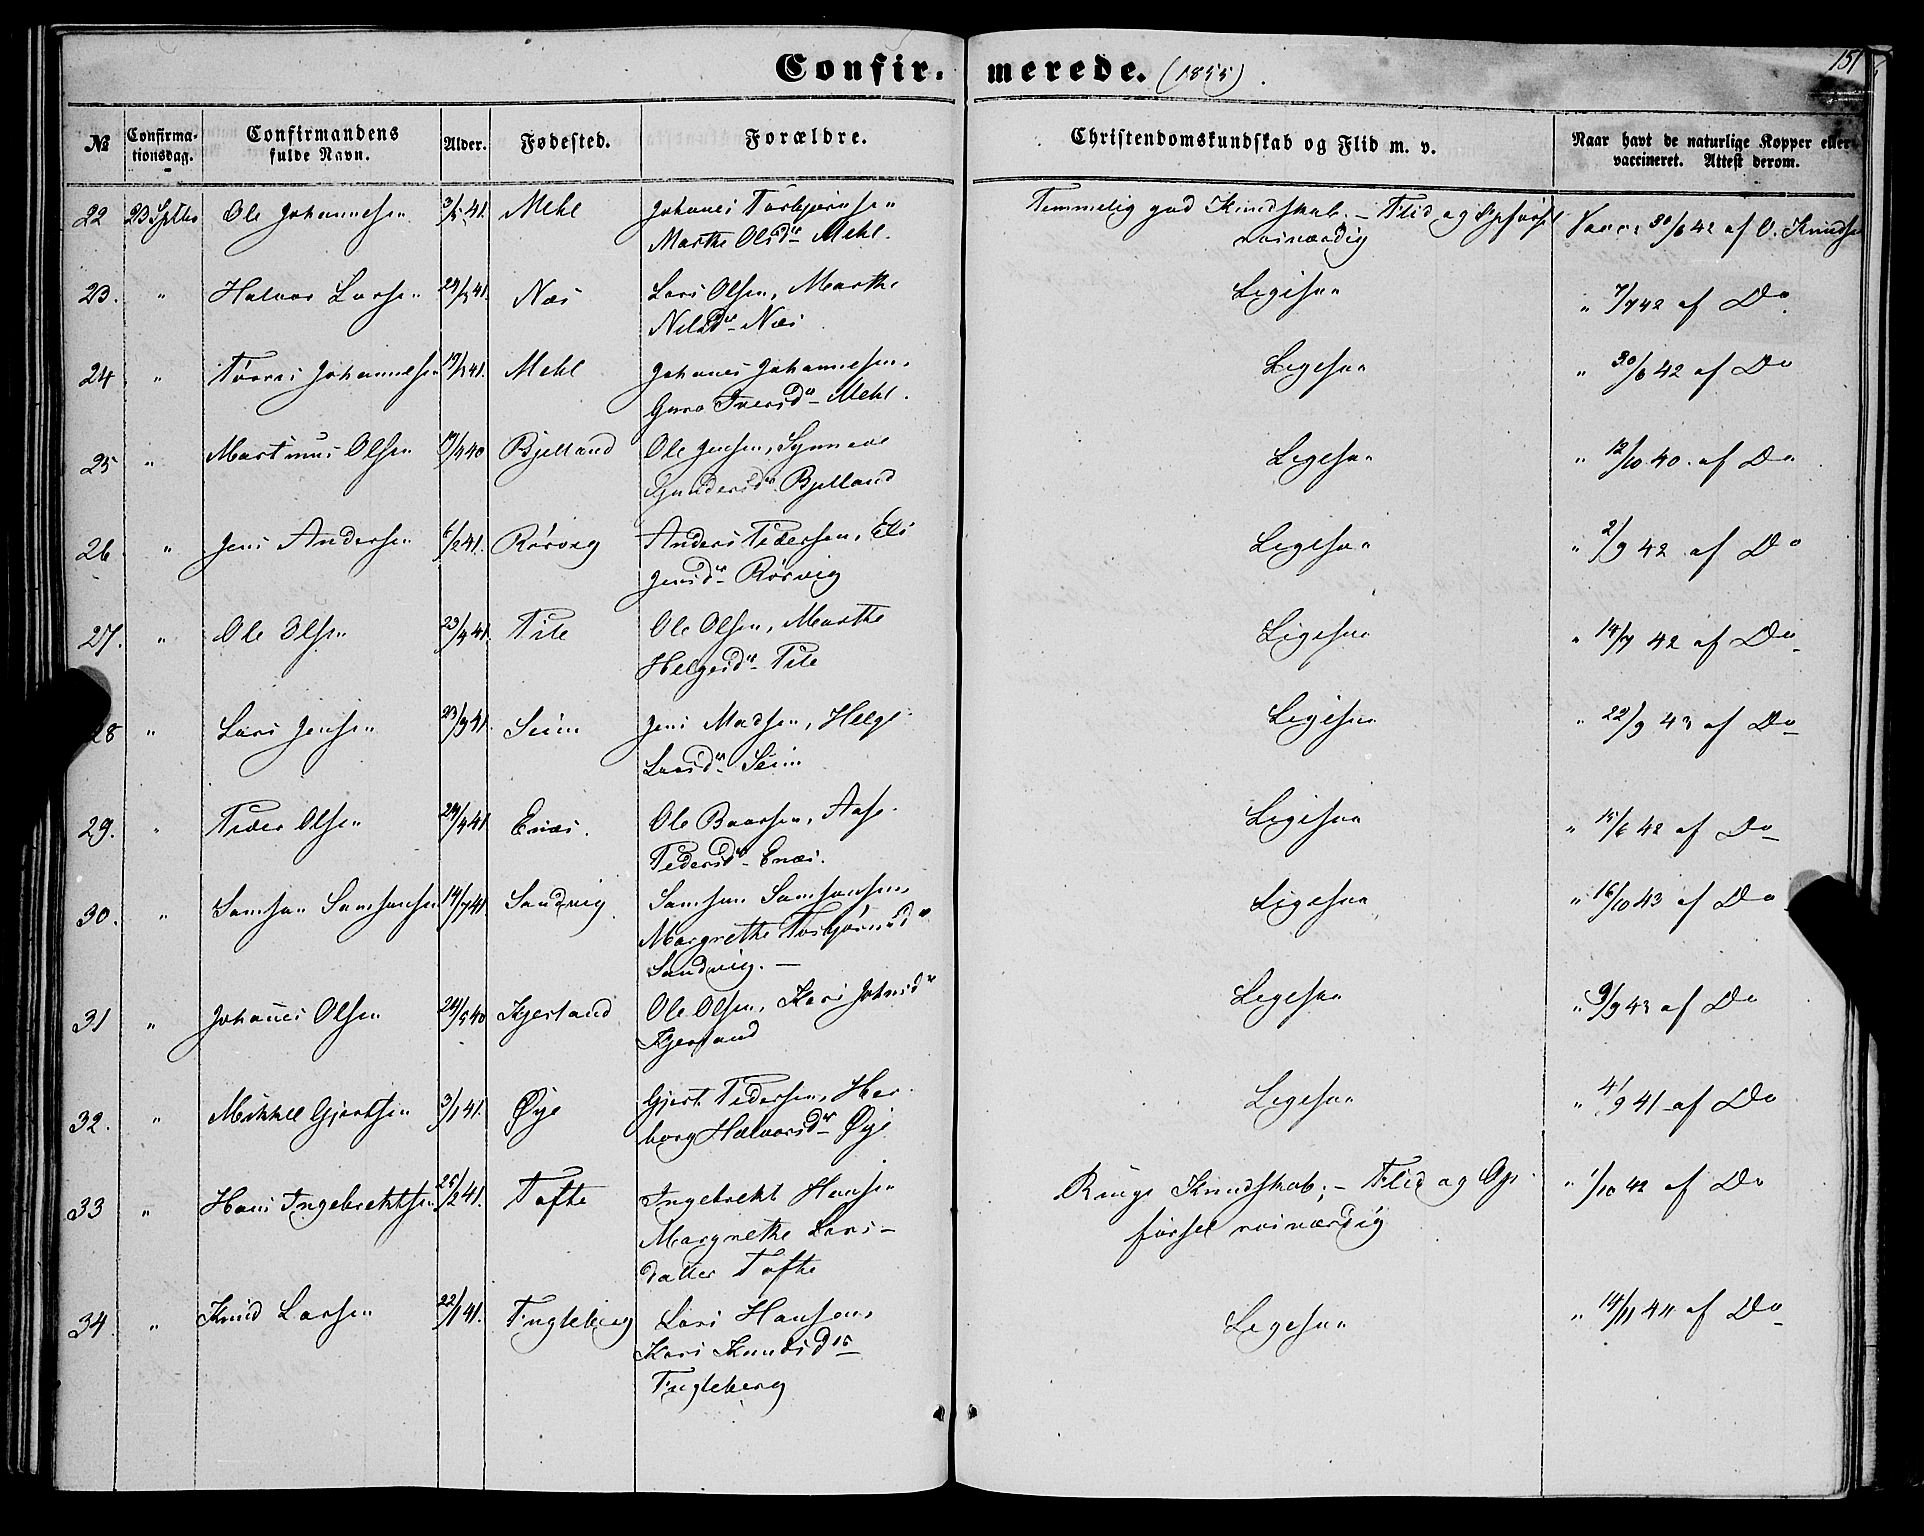 Confir- merede. (1855).
151
№ Confirma-tionsdag. Confirmandens fulde Navn. Alder. Fødested. Forældre. Christendomskundskab og Flid m. v. Naar havt de naturlige Kopper eller vaccineret. Attest derom.
22 23 Septbr Ole Johannesen 3/5 41. Mehl Johanes Torbjørnsen Temmelig god Kundskab. – Flid og Opførsel Vacc: 30/6 42 af O. Knuds
Marthe Olsdr Mehl. roesværdig
23. " Halvor Larsen 41. Næs Lars Olsen, Marthe Ligesaa " 7/7 42 af Do
Nilsdr Næs
24 " Johannesen 41. Mehl Johanes Johannesen, Ligesaa " 30/6 42 af Do
Guro Iversdr Mehl.
25 " Martinus Olsen 40 Bjelland Ole Jensen, Synneve Ligesaa " 12/10 40. af Do
Gundersdr Bjelland
26 " Jens Andersen 6/2 41. Rørvig Anders Pedersen, Eli Ligesaa " 2/9 42 af Do
Jensdr Rørvig
27. " Ole Olsen 23/4 41. Pile Ole Olsen, Marthe Ligesaa " 14/7 42 af Do
Helgesdr Pile
28 " Lars Jensen 23/3 41. Seim Jens Madsen, Helge Ligesaa " 22/9 43 af Do
Larsdr Seim
29. " Peder Olsen 24/4 41 Enæs. Ole Baarsen, Aase Ligesaa " 15/6 42 af Do
Pedersdr Enæs.
30. " Samson Samsonsen 14/7 41 Sandvig Samson Samsonsen, Ligesaa " 16/10 43 af Do
Margrethe Torbjørnsdr
Sandvig. –
31 " Johanes Olsen 24/5 40 Kjerland Ole Olsen, Kari Johnsdr Ligesaa " 9/9 43 af Do
Kjerland
32. " Mikkel Gjertsen 3/1 41. Øye Gjert Pedersen, Her- Ligesaa " 4/9 41 af Do
borg Halvorsdr Øye
33 " Hans Ingebrektsen 25/2 41. Tofte Ingebrekt Hansen Ringe Kundskab; – Flid og Op- " 1/10 42 af Do
Margrethe Lars- førsel roesværdig
datter Tofte
34. " Knud Larsen 22/1 41. Fugleberg Lars Hansen, Ligesaa " 14/11 41 af Do
Kari Knudsdr
Fugleberg